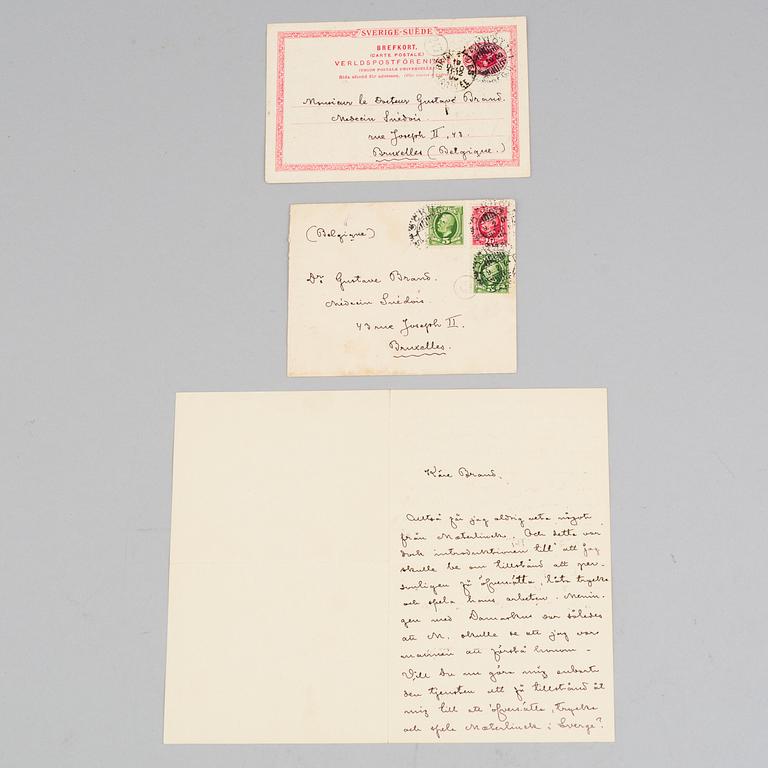 SVERIGE-SUÈDE
BREFKORT.
(CARTE POSTALE)
VERLDSPOSTFÖRENI
(UNION POSTALE UNIVERSELLE)
Monsieur le Docteur Gustave Brand.
Medecin Suédois.
rue Joseph II, 43.
Bruxelles (Belgique.)
(Belgique)
5
Dr Gustave Brand.
Médecin Suédois.
43 rue Joseph II.
Bruxelles.
Käre Brand.
Alltså får jag aldrig veta något
från Mæterlinck. Och detta var
dock introduktionen till att jag
skulle be om tillstånd att per-
sonligen få öfversätta, låta trycka
och spela hans arbeten. Menin-
gen med Damaskus var således
att M. skulle se att jag var
mannen att förstå honom –
Vill Du nu göra mig enbart
den tjensten att få tillstånd åt
mig till att öfversätta, trycka
och spela Mæterlinck i Sverge?